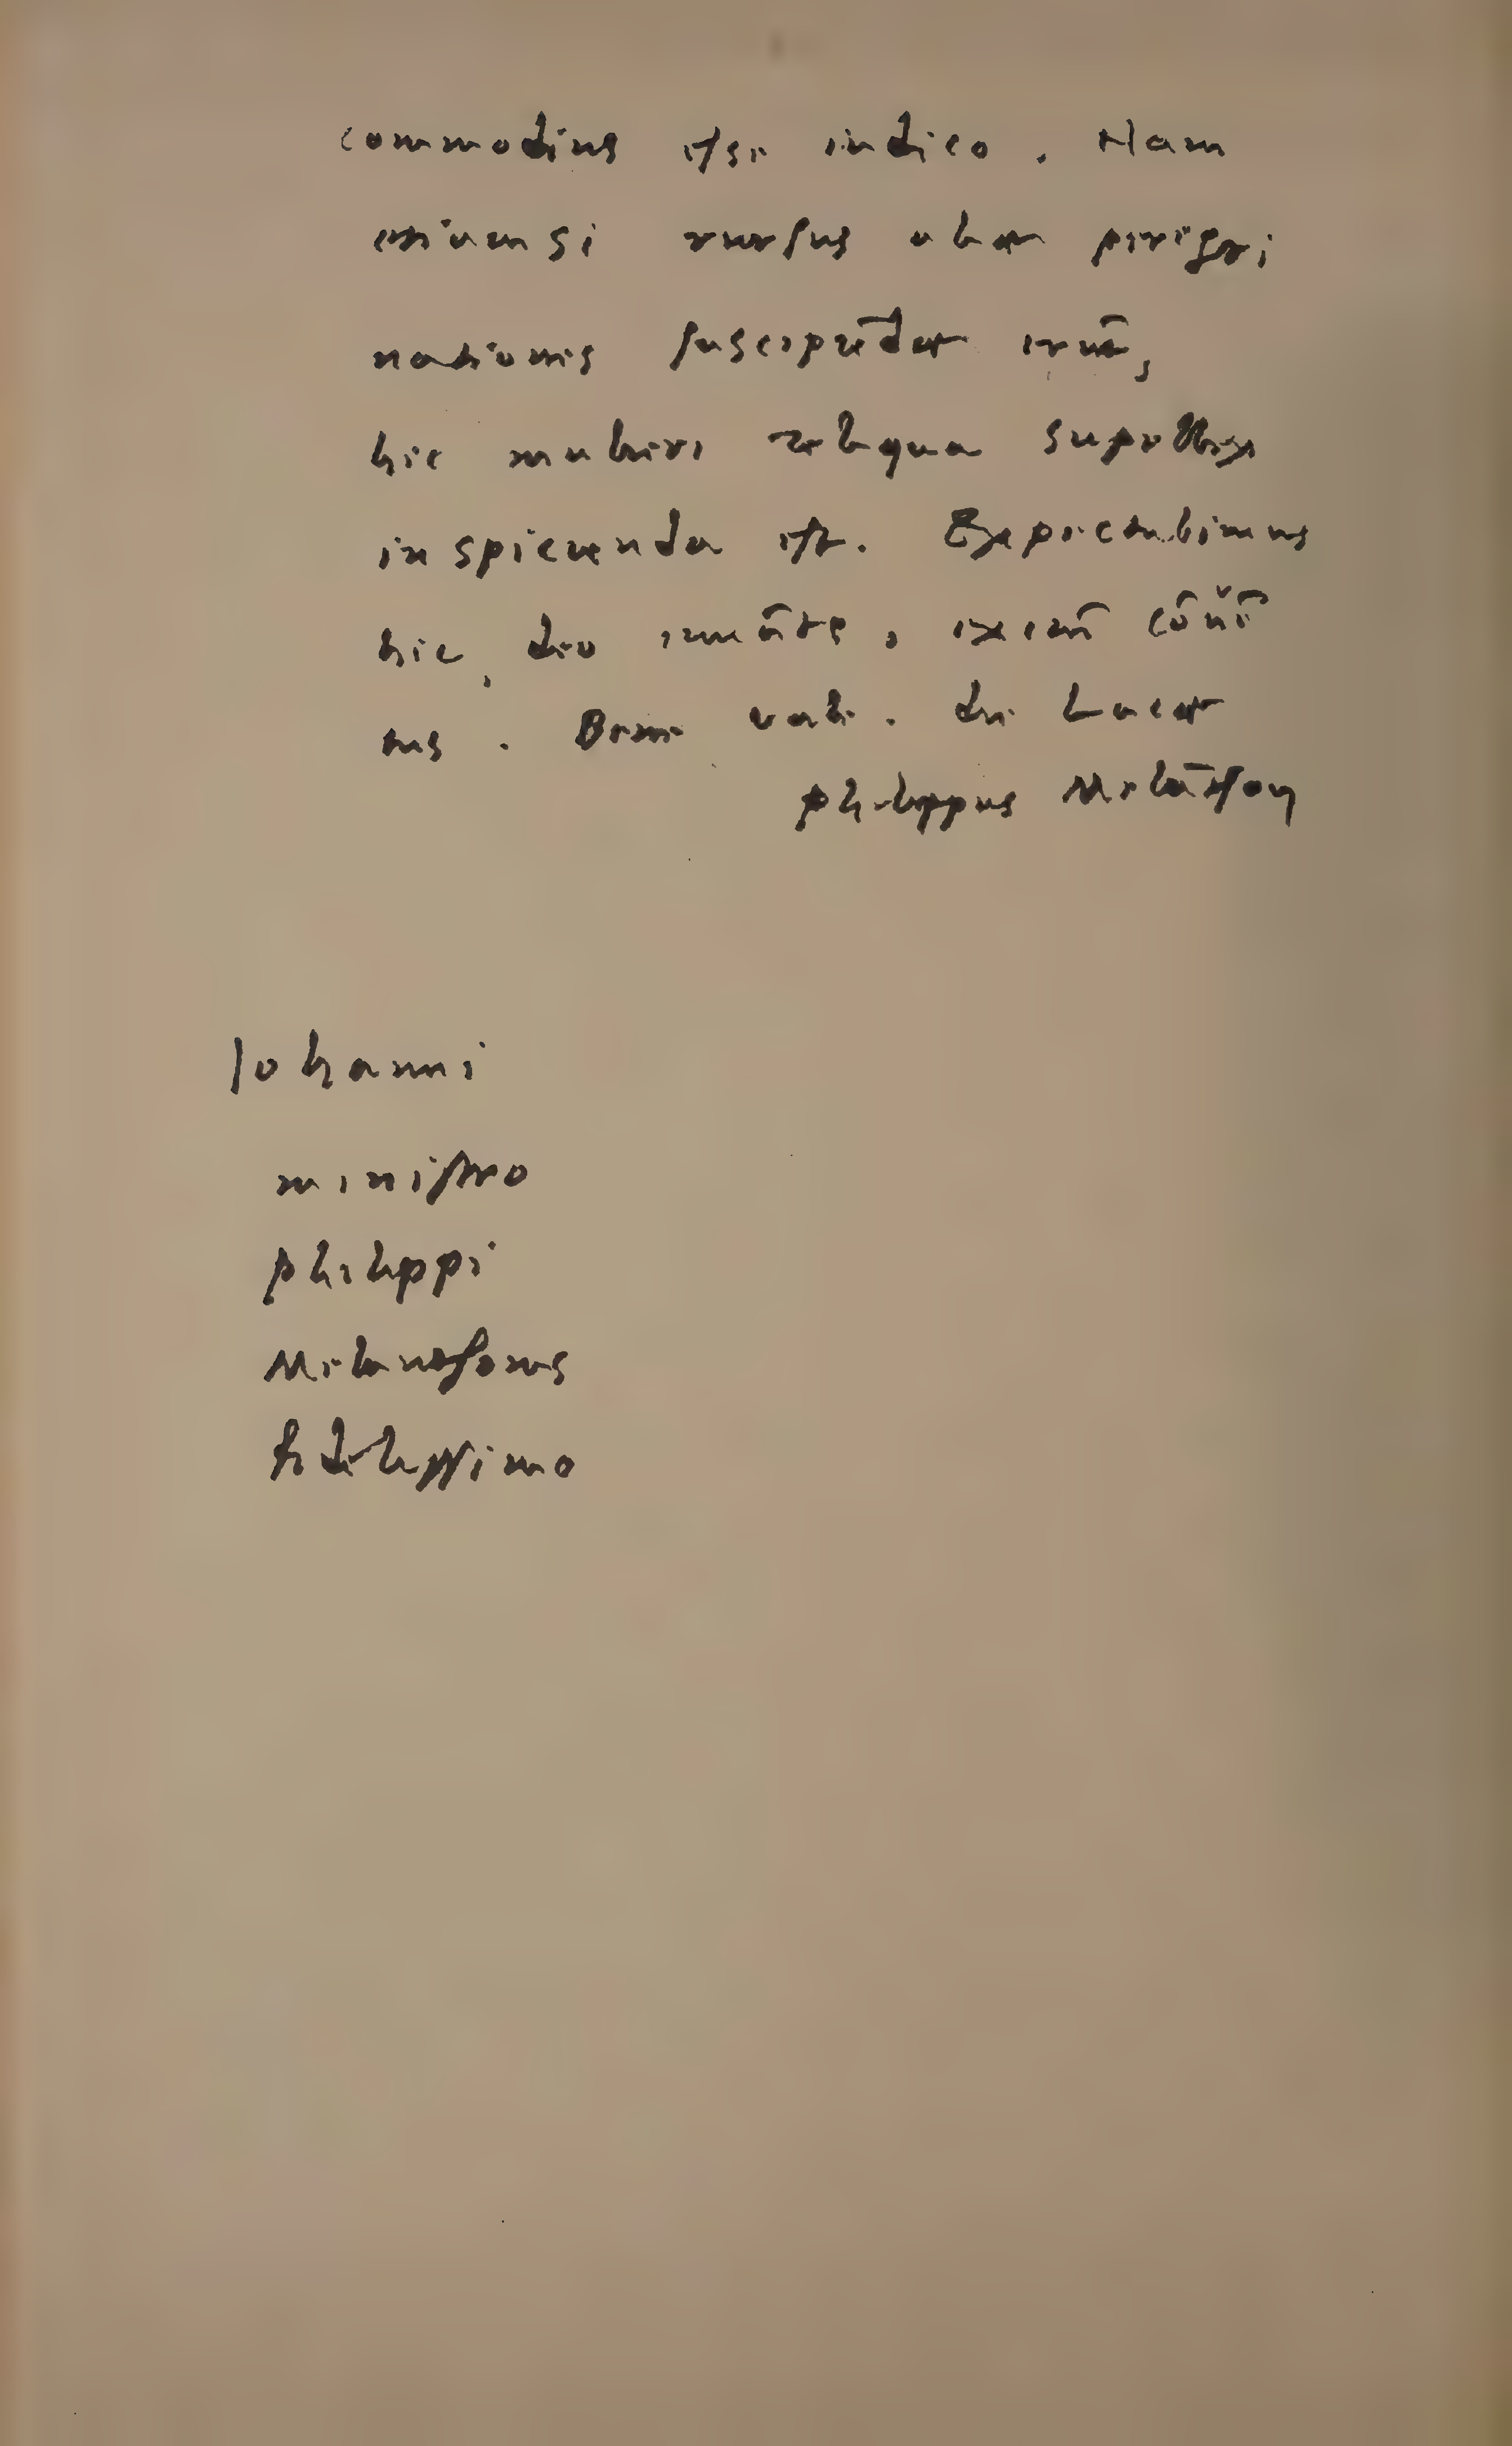 commodius esse iudico . Nam
etiamsi rursus alia peregri
nationis suscipiēda erūt,
hic mulieri reliqua supellex
inspicienda est. Expectabimus
hic, deo iuuāte,
tus . Bene vale . die Luciae
philippus Melāthon
Iohanni
ministro
philippi
Melanthonis
fidelissimo